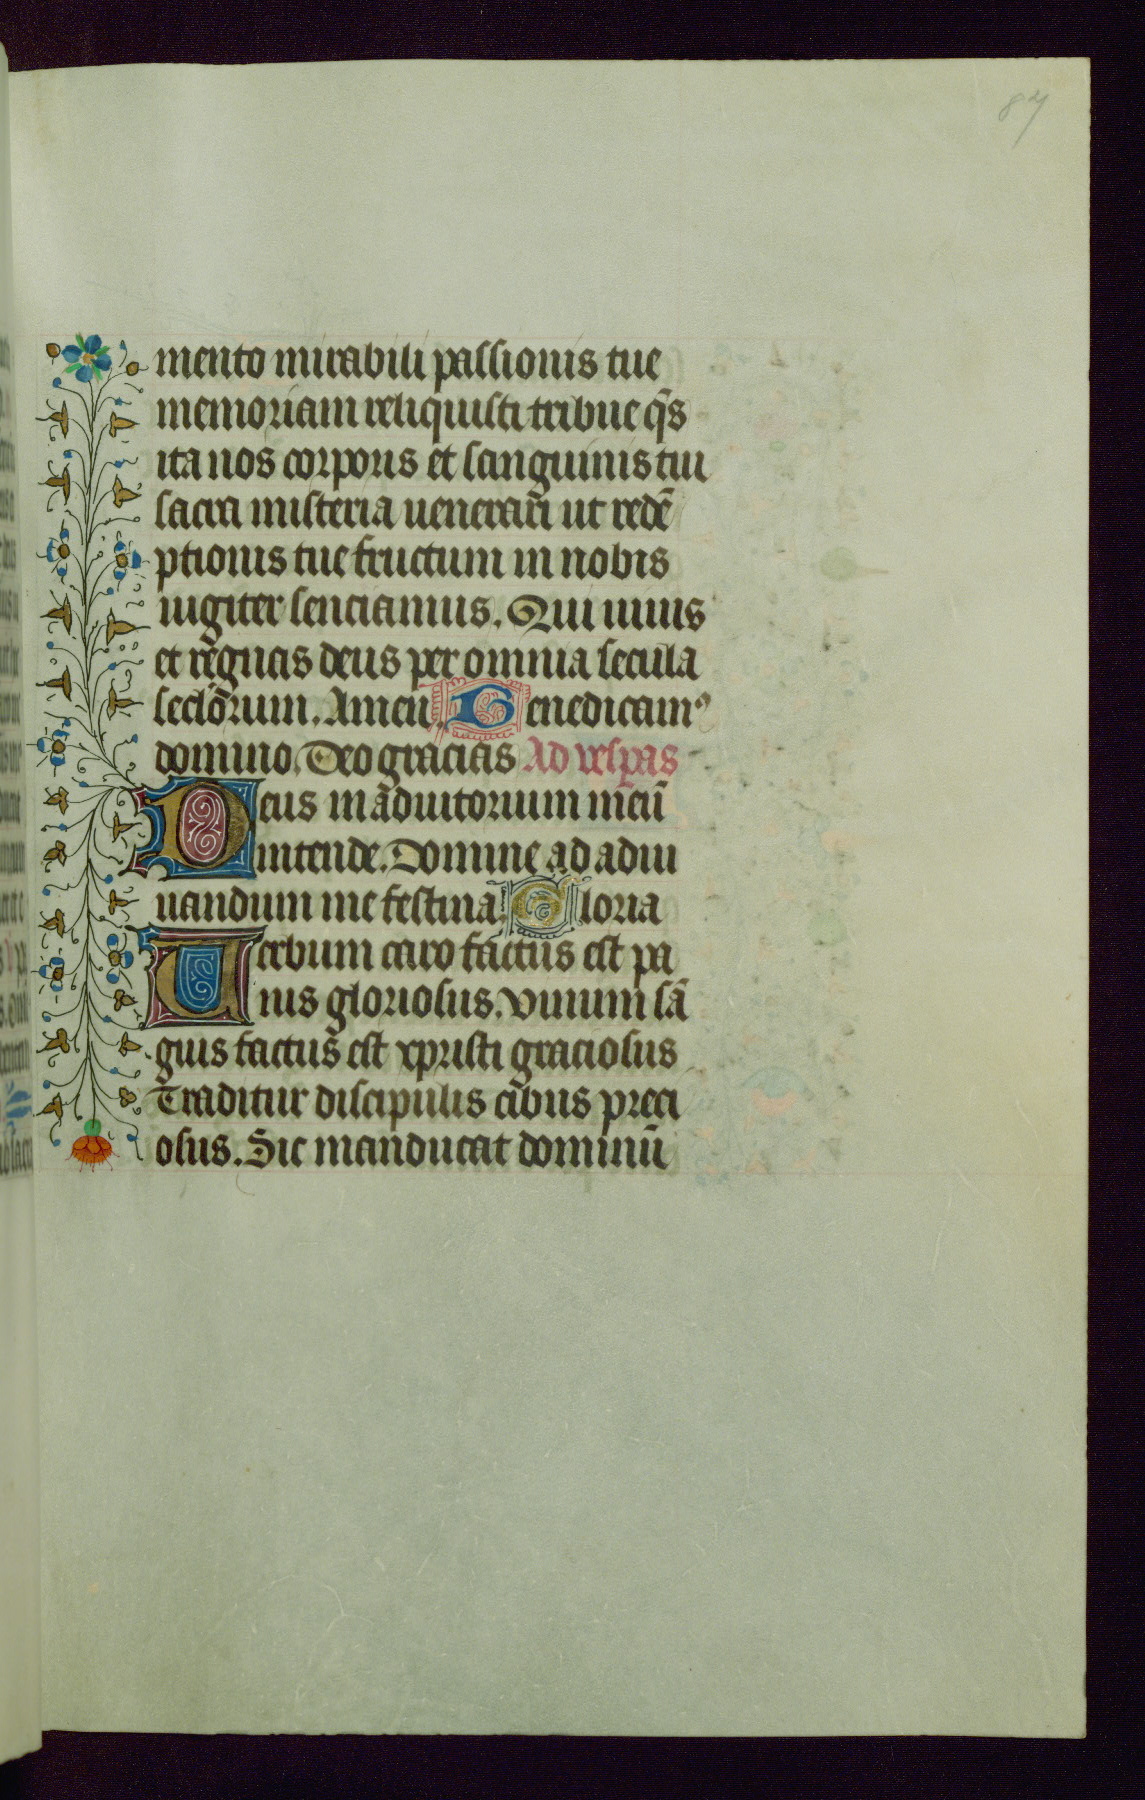 87
mento mirabili passionis tue
memoriam reliquisti tribue q̄s
ita nos corporis et sanguinis tui
sacra misteria uenerari ut redē
ptionis tue fructum in nobis
iugiter senciamus. Qui uiuis
et regnas deus per omnia secula
seclōrum. Amen. Benedicamꝰ
domino. Deo gracias Ad vesp̄as
Deus in adiutorium meū
intende. Domine ad adiu
uandum me festina. Gloria
Uerbum caro factus est pa
nis gloriosus. vinum sā
guis factus est xpristi graciosus
Traditur discipulis cibus preci
osus. Sic manducat dominū